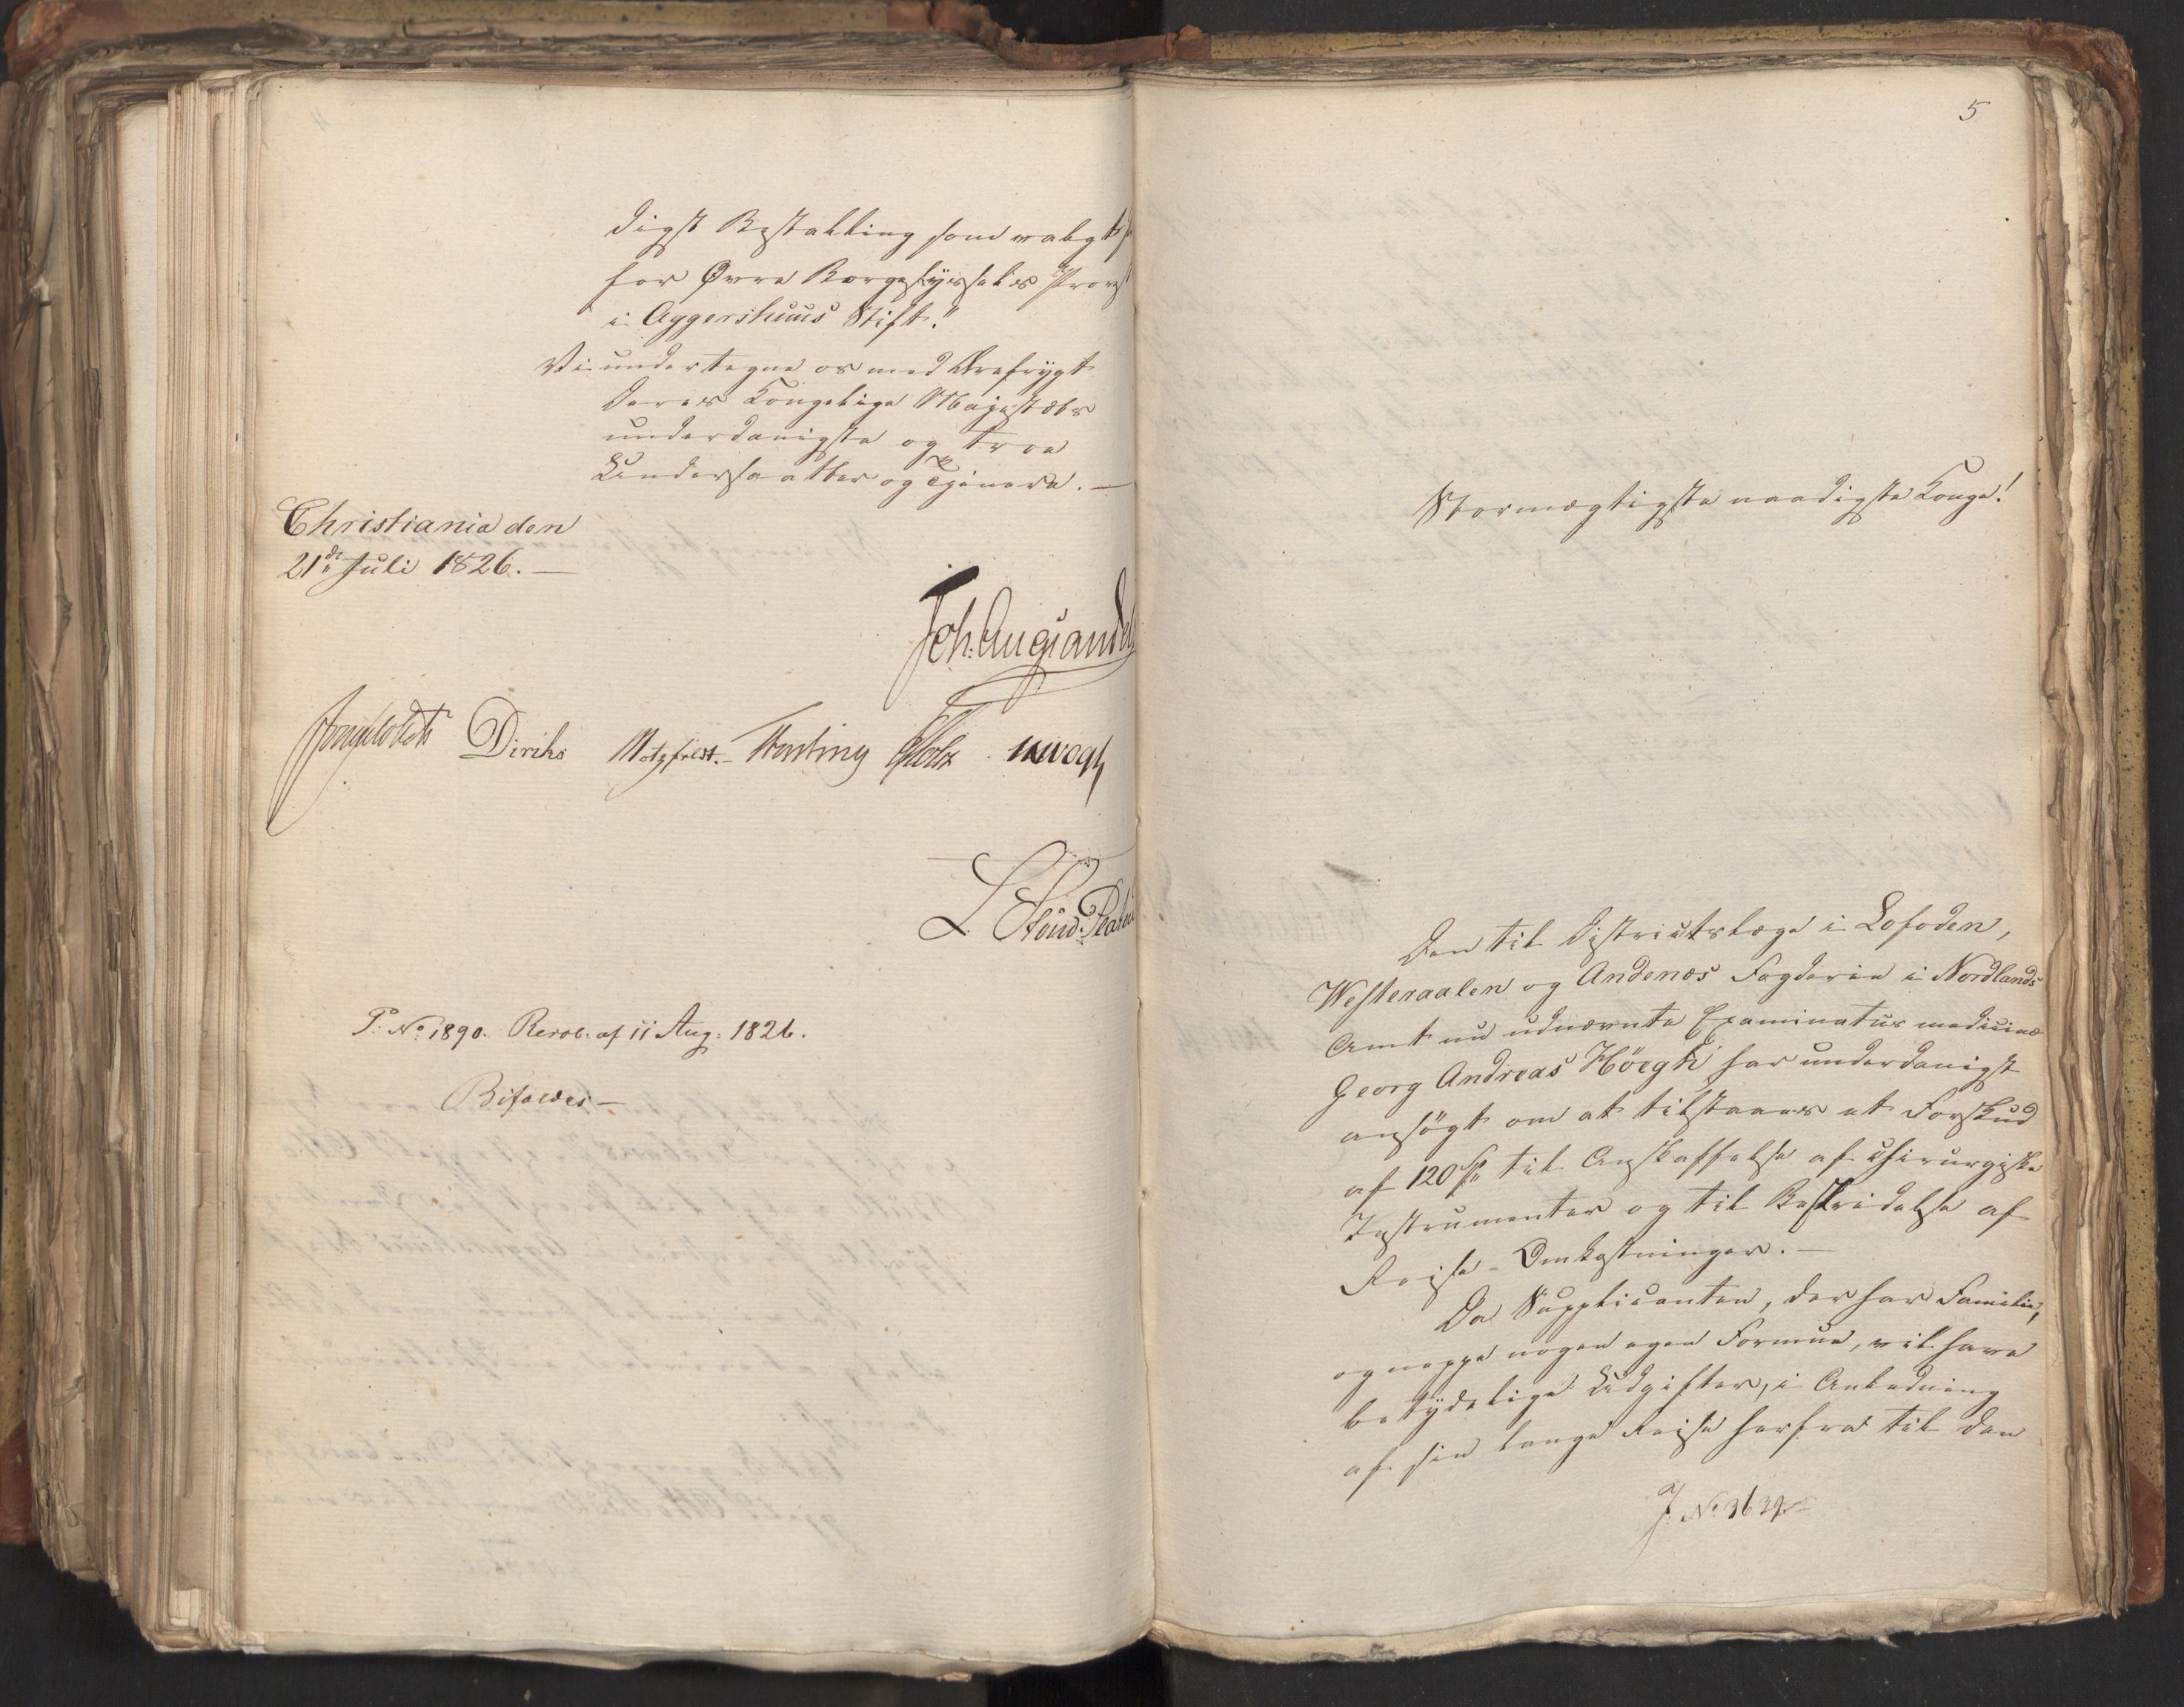 digst Bestalling som valgt
for Øvre Borgesyssels Provst
i Aggershuus Stift."
Vi undertegne os med Ærefrygt
Deres Kongelige Majestæts
underdanigste og troe
Undersaatter og Tjenere. —
Christiania den
21de Juli 1826. —
Joh: Aug: Sandels
Jonas Collett Diriks Motzfeldt. Fasting Holst
L. Stoud: Platou
P: No 1890. Resol: af 11 Aug: 1826.
Bifaldes —
5
Stormægtigste naadigste Konge!
Den til Districtslæge i Lofoden,
Westeraalen og Andenæs Fogderie i Nordlands
Amt nu udnævnte Examinatus medicinæ
Georg Andreas Höegh har underdanigst
ansögt om at tilstaaes et Forskud
af 120 Sp til Anskaffelse af chirurgiske
Instrumenter og til Bestridelse af
Reise-Omkostninger. —
Da Supplicanten, der har Familie,
og neppe nogen egen Formue, vil have
betydelige Udgifter, i Anledning
af sin lange Reise herfra til den
J. No 3639